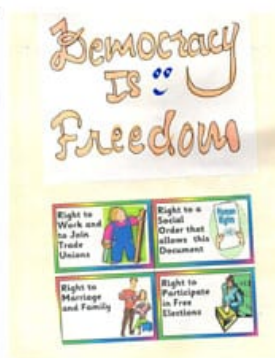 Democracy
Is
Freedom
Right to
Work and
to Join
Trade
Unions
Right to a
Social
Order that
allows this
Document
Human
Rights
Right to
Marriage
and Family
Right to
Participate
in Free
Elections